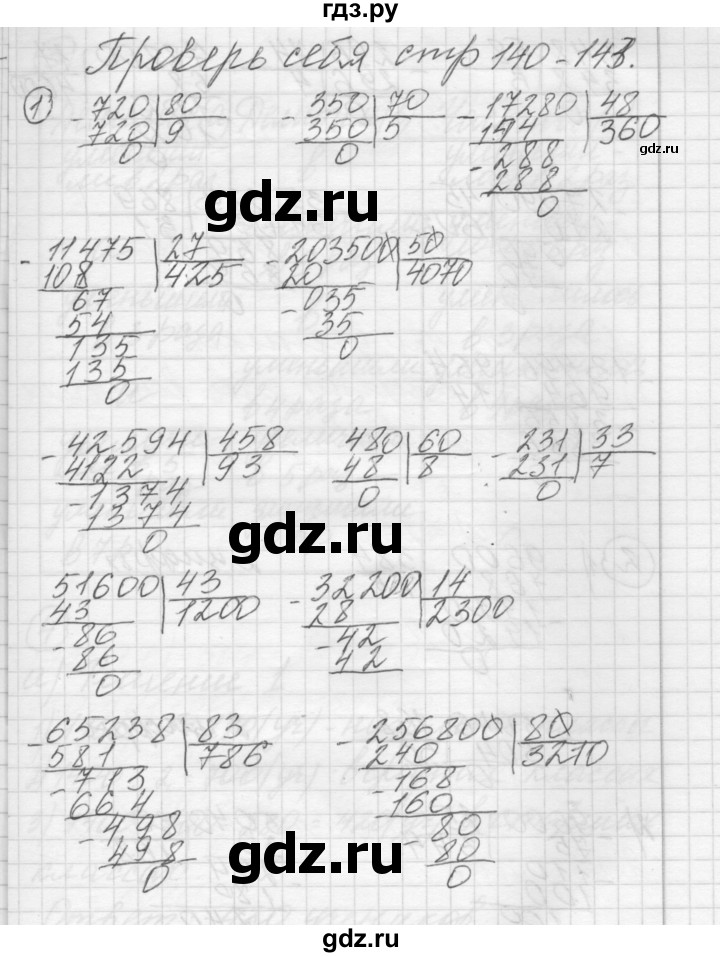 гдз.ру
Проверь себя стр 140-143.
1) -720 | 80   -350 | 70   -17280 | 48
720 | 9   350 | 5   144 | 360
0   0   -288
288
0
gdz.ru
gdz.ru
-11475 | 27   -203500 | 50
108 | 425   20 | 4070
67   -035
54   35
135   0
135
0
-42594 | 458   480 | 60   -231 | 33
4122 | 93   48 | 8   231 | 7
-1374   0   0
1374
0
gdz.ru
51600 | 43   -32200 | 14
43 | 1200   28 | 2300
-86   -42
86   42
0
gdz.ru
-65238 | 83   -256800 | 80
581 | 786   240 | 3210
-713   -168
664   160
-498   -80
498   80
0   0
gdz.ru
gdz.ru